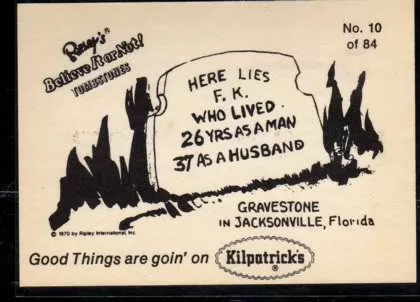 Ripley's
Believe It or Not!
TOMBSTONES
No. 10
of 84
HERE LIES
F. K.
WHO LIVED.
26 YRS AS A MAN
37 AS A HUSBAND
GRAVESTONE
IN JACKSONVILLE, Florida
© 1970 by Ripley International, Inc.
Good Things are goin' on Kilpatrick's ®